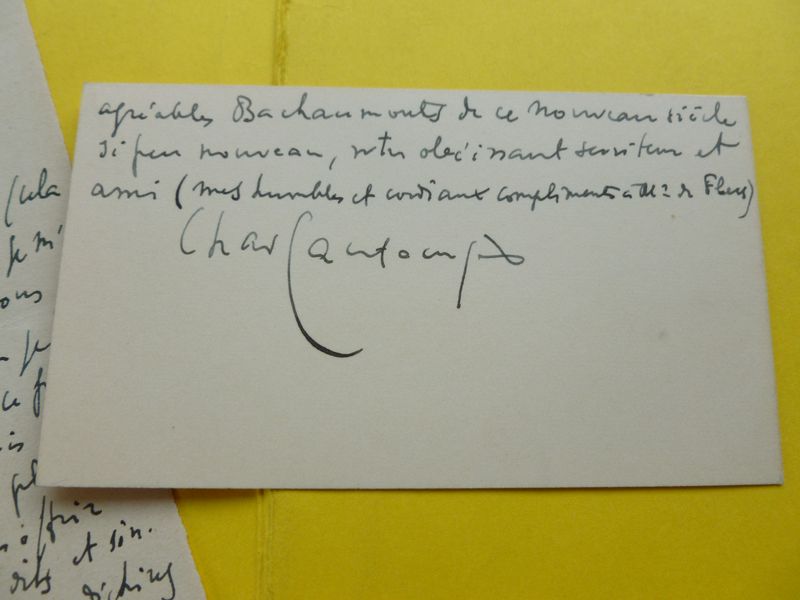 agréables Bachaumonts de ce nouveau siècle
si peu nouveau, votre obéissant serviteur et
ami (mes humbles et cordiaux compliments à Me de Flers)
Char
(cela
je m'
ous
ce
offrir
et sin.